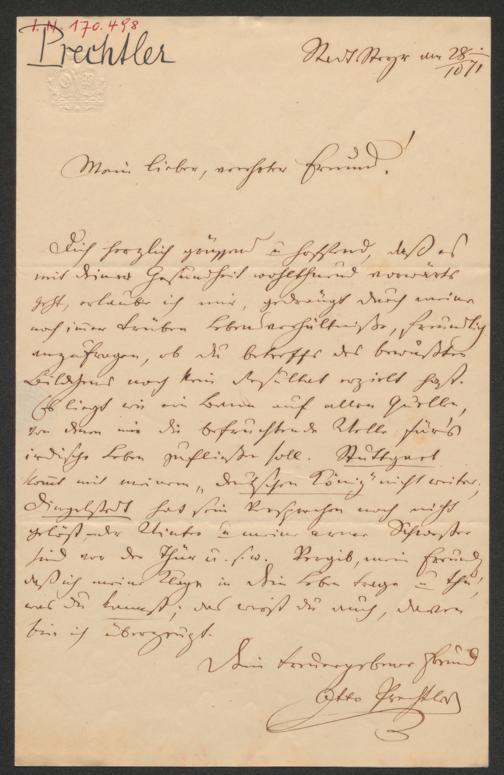 I. N. 170.498
Prechtler
Stadt Steyr am 28/10 71
Mein lieber, verehrter Freund!
Dich herzlich grüssend u hoffend, daß es
mit deiner Gesundheit wohlthuend vorwärts
geht, erlaube ich mir, gedrängt durch meine
noch imer trüben Lebensverhältniße, freundlich
anzufragen, ob du betreffs des bewußten
Bildchens noch kein Resultat erzielt hast.
Es liegt wie ein Bann auf allen Quellen,
von denen mir die befruchtende Welle für's
irdische Leben zufließen soll. Stuttgart
komt mit meinem "deutschen König" nicht weiter,
Dingelstedt hat sein Versprechen noch nicht
gelöst – der Winter u meine arme Schwester
sind vor der Thür u. s. w. Vergib, mein Freund,
daß ich meine Klage in Dein Leben trage u thu',
was du kannst; das wirst du auch, davon
bin ich überzeugt.
Dein treuergebener Freund
Otto Prechtler